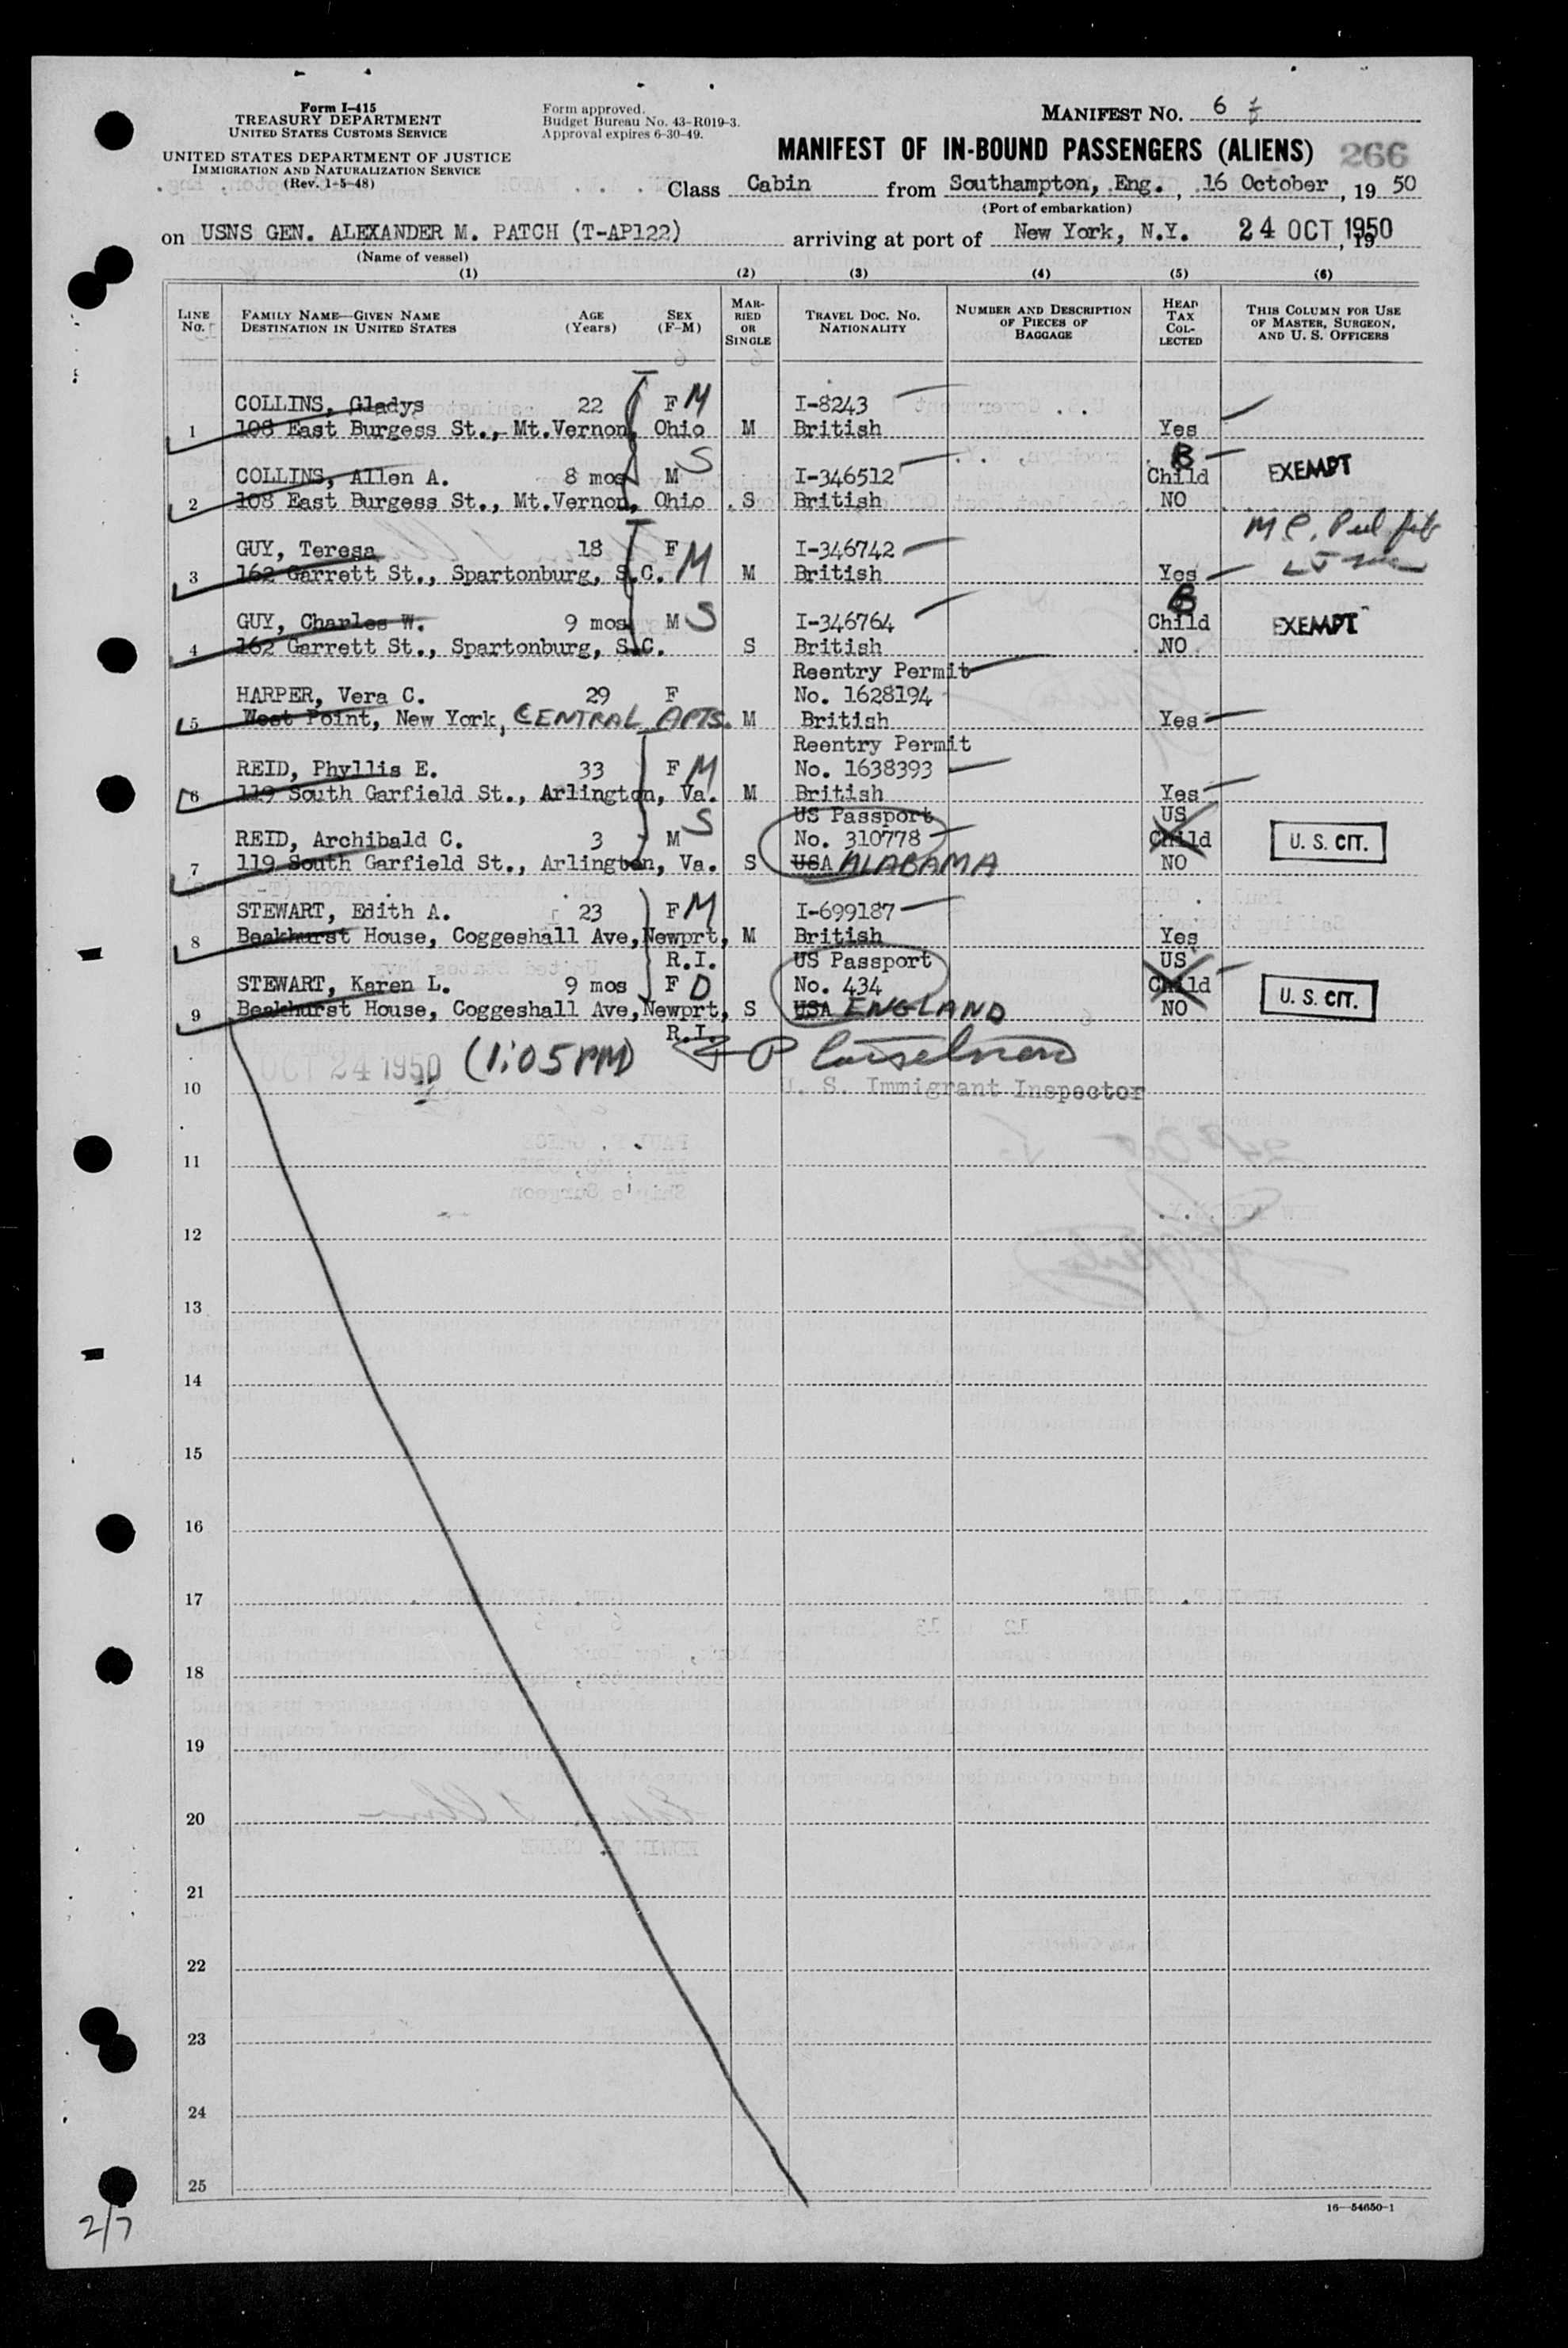 Form I-415
TREASURY DEPARTMENT
UNITED STATES CUSTOMS SERVICE
UNITED STATES DEPARTMENT OF JUSTICE
IMMIGRATION AND NATURALIZATION SERVICE
(Rev. 1-5-48)
Form approved.
Budget Bureau No. 43-R019-3.
Approval expires 6-30-49.
MANIFEST NO. 6
MANIFEST OF IN-BOUND PASSENGERS (ALIENS) 266
Class Cabin from Southampton, Eng., 16 October, 19 50
(Port of embarkation)
on USNS GEN. ALEXANDER M. PATCH (T-AP122) arriving at port of New York, N.Y. 24 OCT 1950, 19
(Name of vessel)
(1) (2) (3) (4) (5) (6)
LINE No. FAMILY NAME—GIVEN NAME DESTINATION IN UNITED STATES AGE (Years) SEX (F-M) MARRIED OR SINGLE TRAVEL DOC. NO. NATIONALITY NUMBER AND DESCRIPTION OF PIECES OF BAGGAGE HEAD TAX COLLECTED THIS COLUMN FOR USE OF MASTER, SURGEON, AND U. S. OFFICERS
COLLINS, Gladys 22 F M I-8243
1 108 East Burgess St., Mt.Vernon, Ohio M British Yes
S B
COLLINS, Allen A. 8 mos M I-346512 Child EXEMPT
2 108 East Burgess St., Mt.Vernon, Ohio S British NO
GUY, Teresa 18 F M I-346742
3 162 Garrett St., Spartonburg, S.C. M British Yes
B
GUY, Charles W. 9 mos M S I-346764 Child EXEMPT
4 162 Garrett St., Spartonburg, S.C. S British NO
Reentry Permit
HARPER, Vera C. 29 F No. 1628194
5 West Point, New York, CENTRAL APTS. M British Yes
Reentry Permit
REID, Phyllis E. 33 F M No. 1638393
6 119 South Garfield St., Arlington, Va. M British Yes
S US Passport US
REID, Archibald C. 3 M No. 310778 Child U. S. CIT.
7 119 South Garfield St., Arlington, Va. S USA ALABAMA NO
STEWART, Edith A. 23 F M I-699187
8 Beakhurst House, Coggeshall Ave,Newprt, M British Yes
R.I. US Passport US
STEWART, Karen L. 9 mos F D No. 434 Child U. S. CIT.
9 Beakhurst House, Coggeshall Ave,Newprt, S USA ENGLAND NO
R.I.
OCT 24 1950 (1:05 PM)
10 U. S. Immigrant Inspector
11
12
13
14
15
16
17
18
19
20
21
22
23
24
25
16—54650-1
2/7